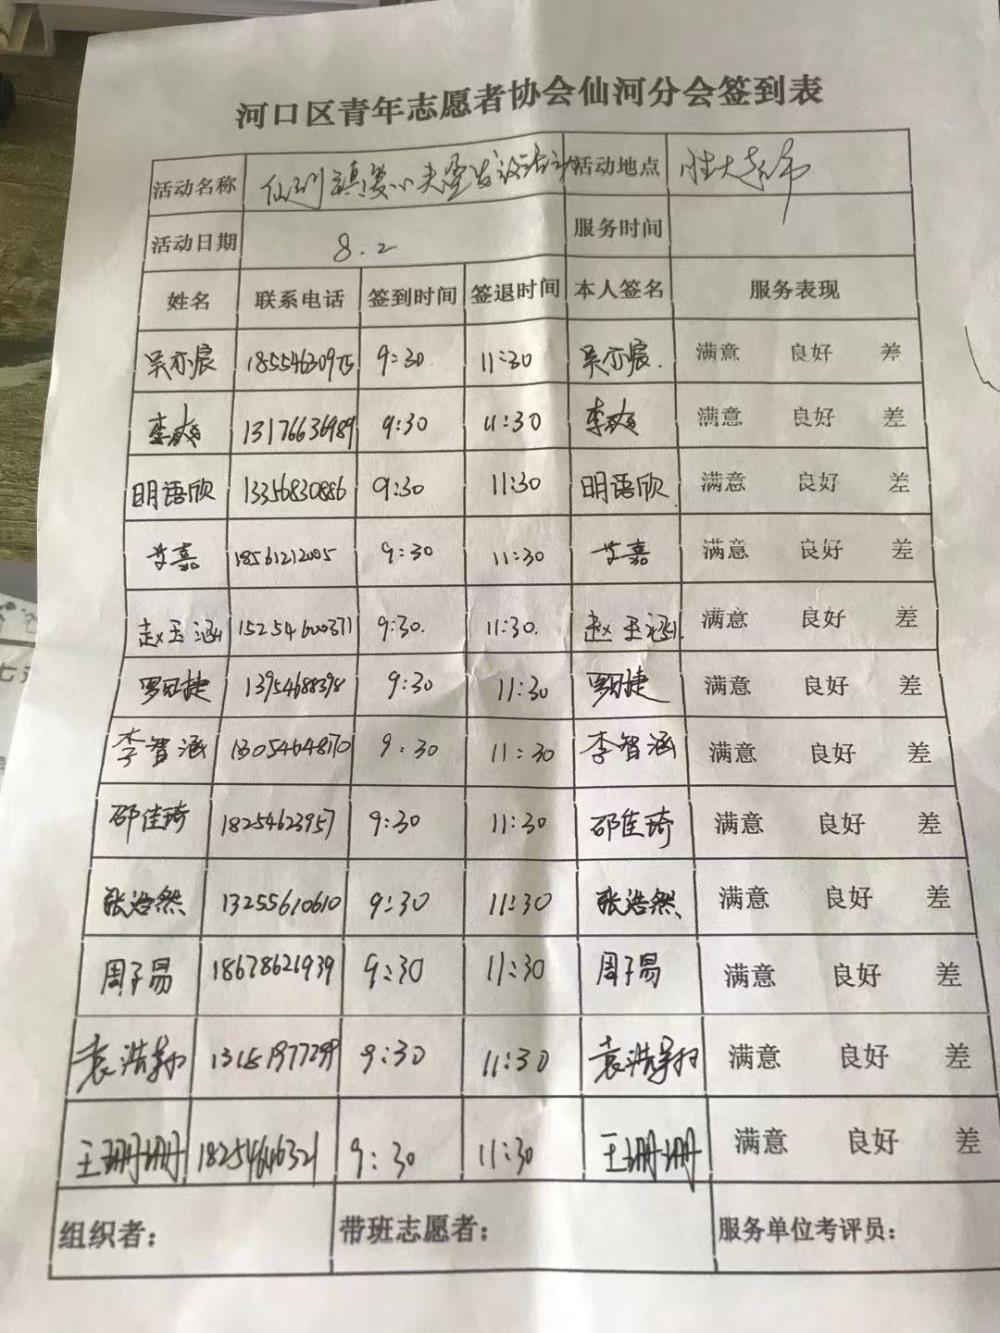 河口区青年志愿者协会仙河分会签到表
活动名称 仙河镇 活动地点
活动日期 8.2 服务时间
姓名 联系电话 签到时间 签退时间 本人签名 服务表现
吴亦宸 9:30 11:30 吴亦宸. 满意 良好 差
李 13176636989 9:30 11:30 李 满意 良好 差
明语欣 13356830886 9:30 11:30 明语欣 满意 良好 差
艾嘉 18561212005 9:30 11:30 艾嘉 满意 良好 差
赵玉涵 15254600371 9:30. 11:30. 赵玉涵 满意 良好 差
捷 13954688398 9:30 11:30 捷 满意 良好 差
李智涵 13054648170 9:30 11:30 李智涵 满意 良好 差
邵佳琦 18254623957 9:30 11:30 邵佳琦 满意 良好 差
张浩然 13255610610 9:30 11:30 张浩然 满意 良好 差
周子易 18678621939 9:30 11:30 周子易 满意 良好 差
袁浩翔 13151977299 9:30 11:30 袁浩翔 满意 良好 差
王珊珊 18254646321 9:30 11:30 王珊珊 满意 良好 差
组织者: 带班志愿者: 服务单位考评员: